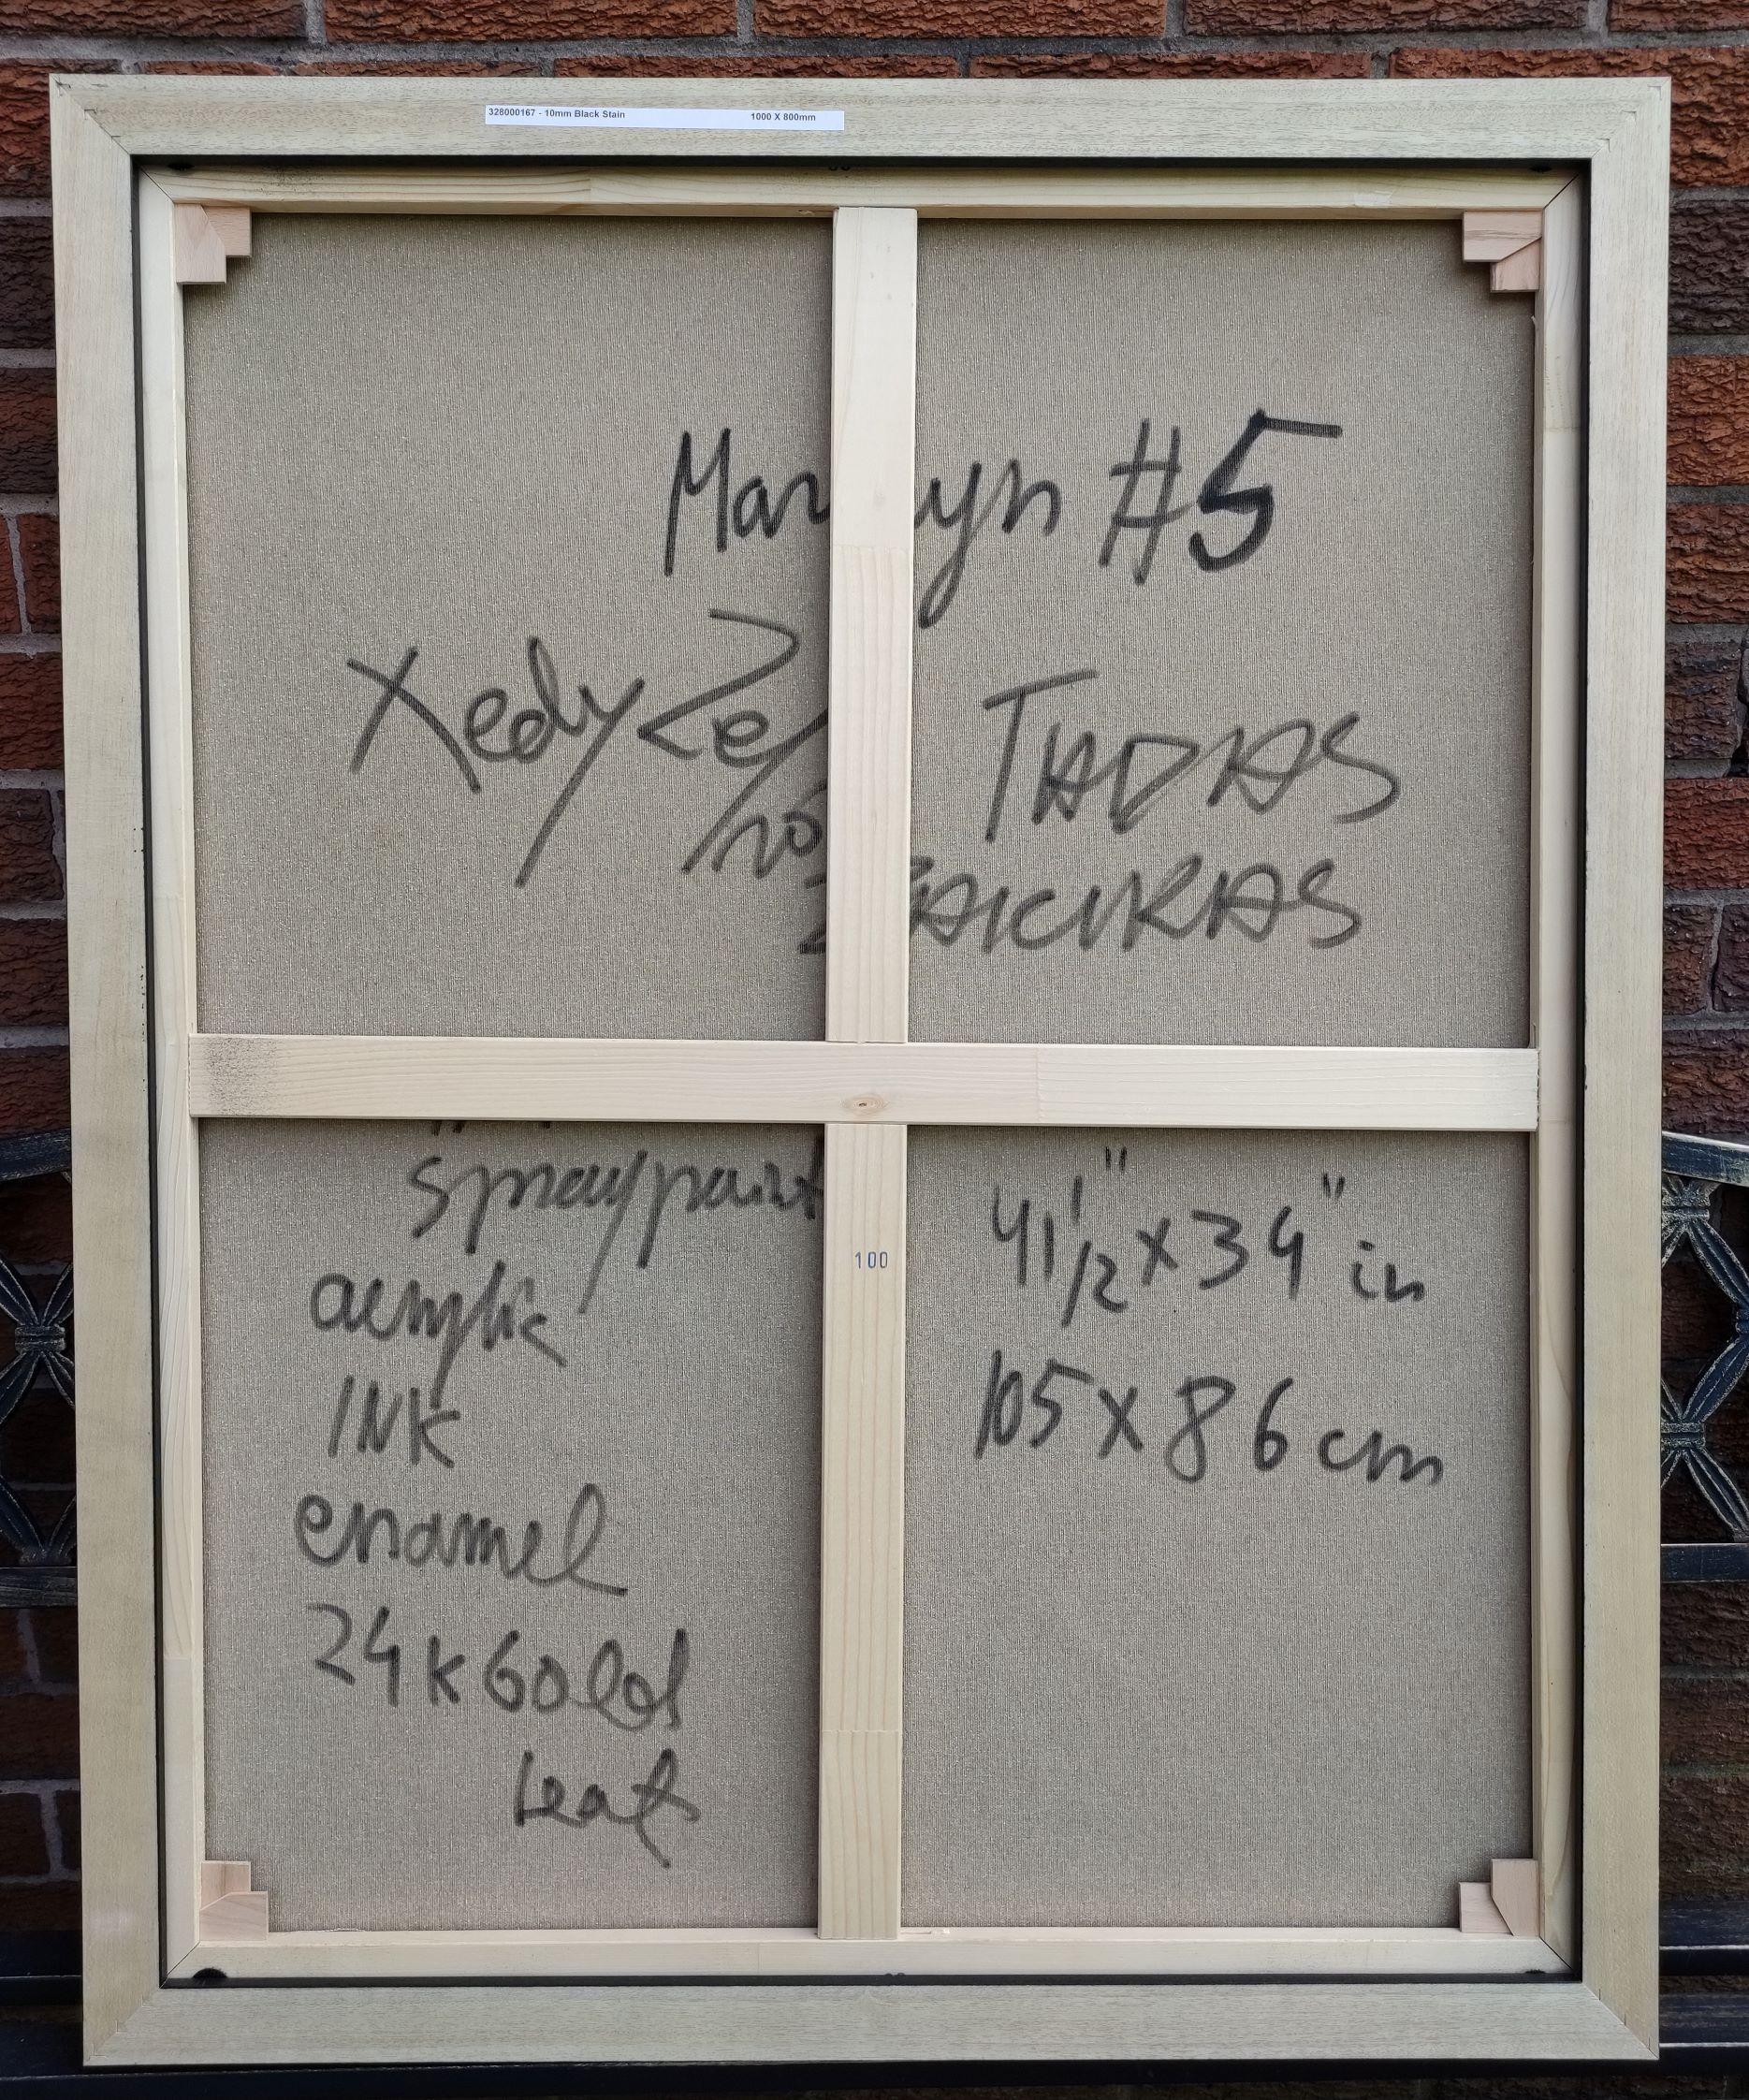 328000167 - 10mm Black Stain 1000 X 800mm
Mar yn #5
TADAS
ZAICIKAS
spraypaint
acrylic
INK
enamel
24K Gold
Leaf
100
41 1/2" x 34" in
105 x 86 cm